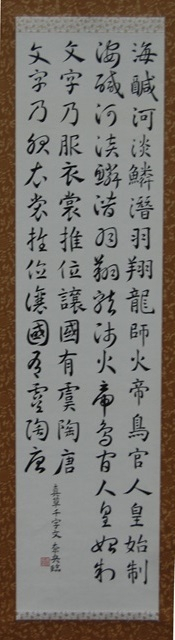 海醎河淡鱗潛羽翔龍師火帝鳥官人皇始制
海醎河淡鱗潛羽翔龍師火帝鳥官人皇始制
文字乃服衣裳推位讓國有虞陶唐
文字乃服衣裳推位讓國有虞陶唐
真草千字文 臨